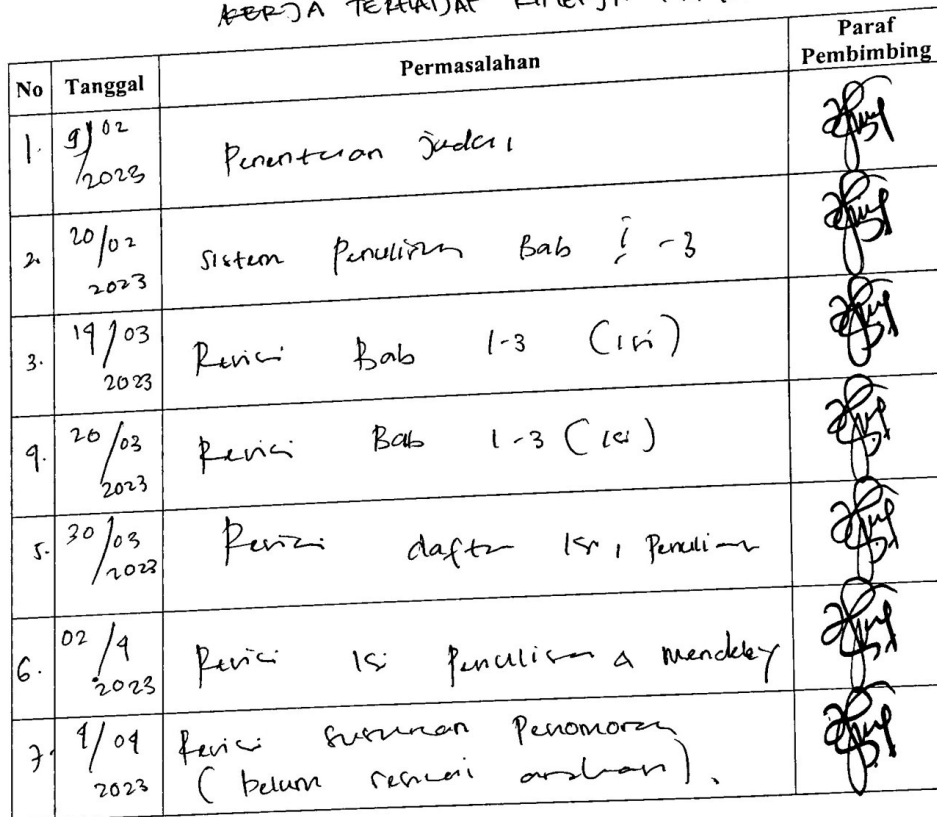 KERJA TERHADAP KINERJA
No Tanggal Permasalahan Paraf Pembimbing
1. 9/02 2023 Penentuan judul
2. 20/02 2023 Sistem Penulisan Bab 1-3
3. 19/03 2023 Revisi Bab 1-3 (isi)
4. 20/03 2023 Revisi Bab 1-3 (isi)
5. 30/03 2023 Revisi daftar isi, Penulisan
6. 02/4 2023 Revisi isi Penulisan & mendeley
7. 4/04 2023 Revisi susunan Penomoran
(belum sesuai arahan).